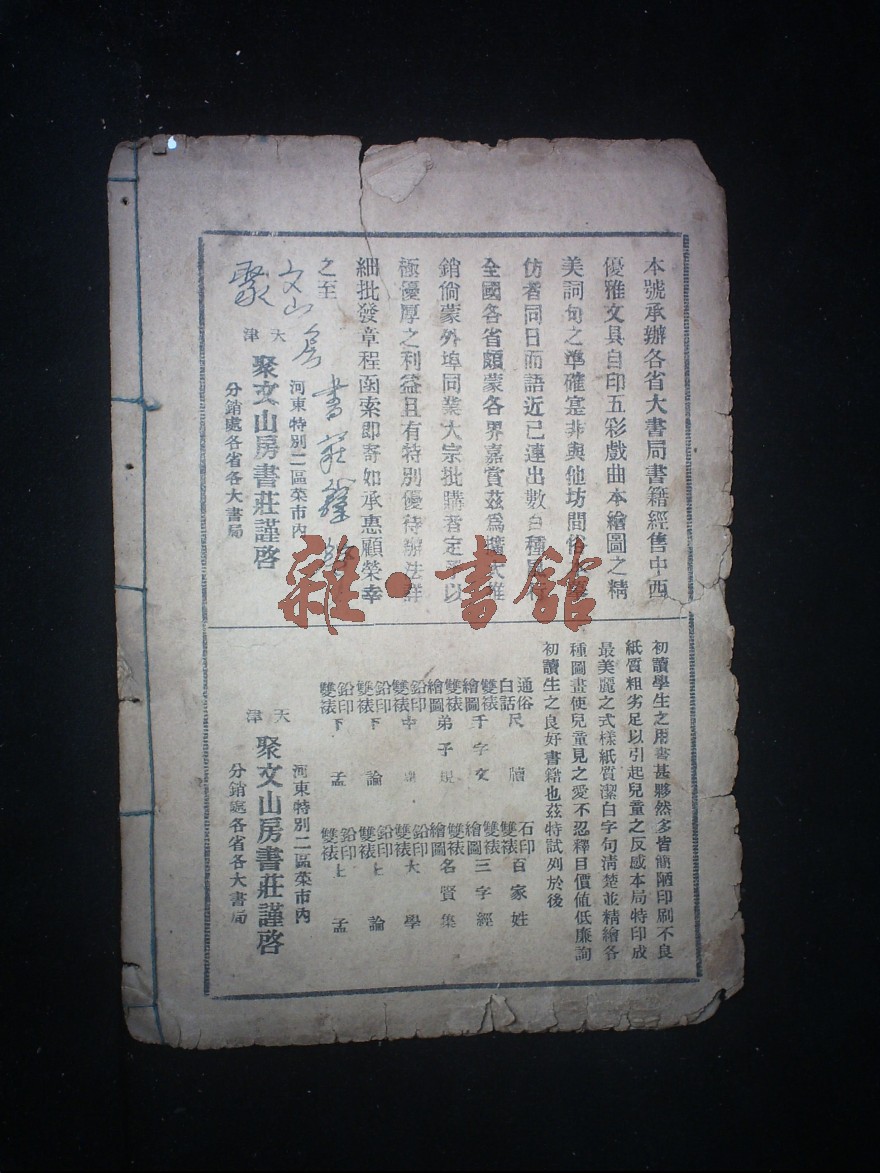 本號承辦各省大書局書籍經售中西
優雅文具自印五彩戲曲本繪圖之精
美詞句之準確寔非與他坊間俗
仿者同日而語近已連出數百種
全國各省頗蒙各界嘉賞茲為擴大推
銷倘蒙外埠同業大宗批購者定予以
極優厚之利益且有特別優待辦法詳
細批發章程函索即寄如承惠顧榮幸
之至
文山房書莊謹啓
聚
河東特別二區菜市內
天津
聚文山房書莊謹啓
分銷處各省各大書局
初讀學生之用書甚夥然多皆簡陋印刷不良
紙質粗劣足以引起兒童之反感本局特印成
最美麗之式樣紙質潔白字句清楚並精繪各
種圖畫使兒童見之愛不忍釋目價值低廉詢
初讀生之良好書籍也茲特試列於後
通俗白話尺牘 石印雙裱百家姓
雙裱繪圖千字文 雙裱繪圖三字經
雙裱繪圖弟子規 雙裱繪圖名賢集
鉛印雙裱中庸 鉛印雙裱大學
鉛印雙裱下論 鉛印雙裱上論
鉛印雙裱下孟 鉛印雙裱上孟
河東特別二區菜市內
天津
聚文山房書莊謹啓
分銷處各省各大書局
雜·書館